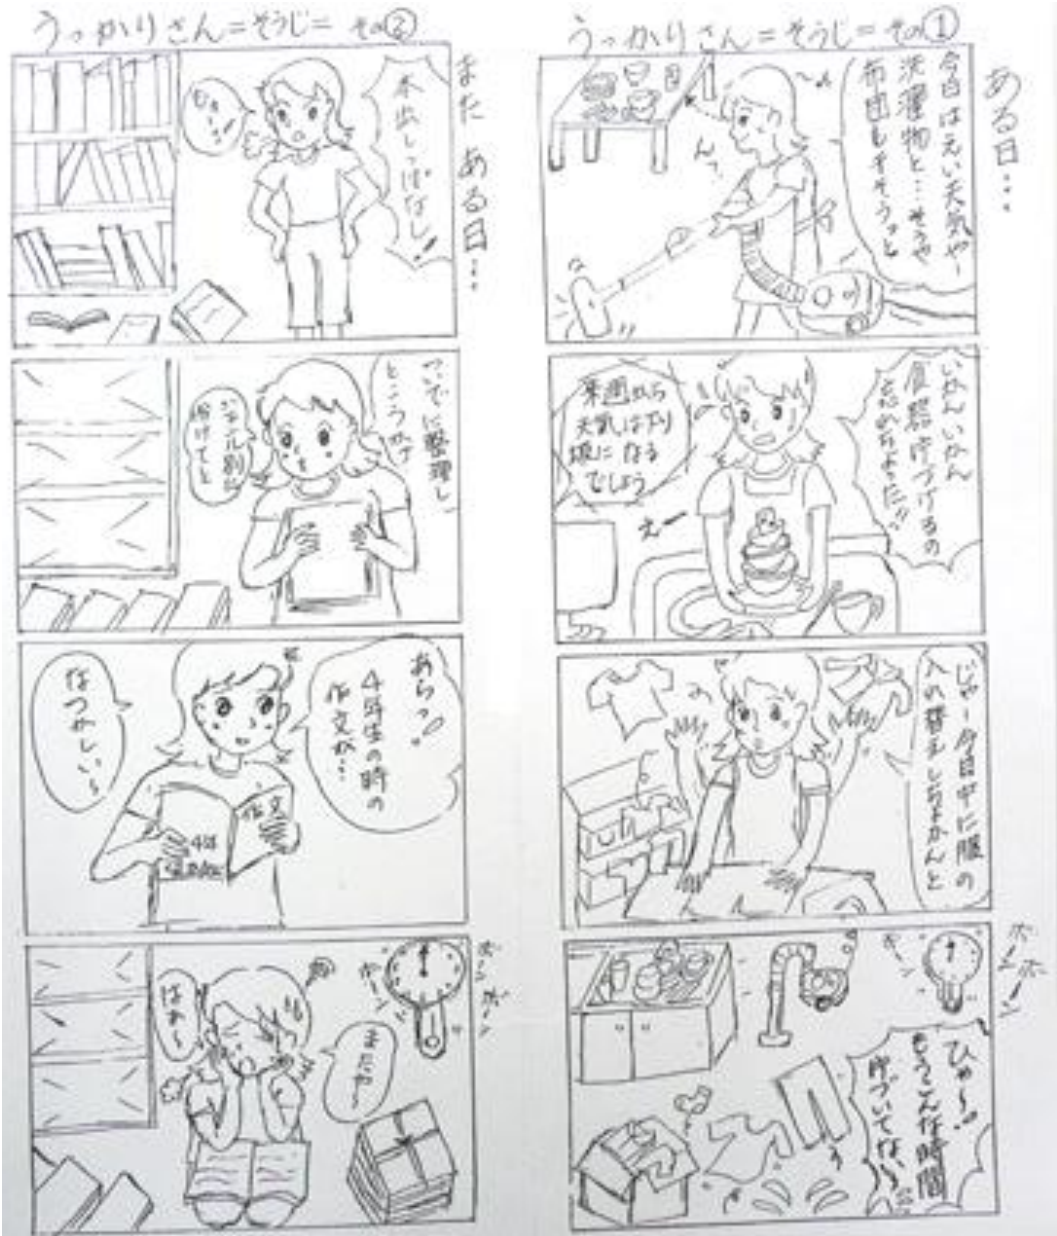 うっかりさん=そうじ= その①
ある日…
今日はえい天気やー
洗濯物と…そうや
布団もそうっと
んっ
いかんいかん
食器片づけるの
忘れちょった!!
来週から
天気は下り
坂になる
でしょう
えー
じゃー今日中に服の
入れ替えしちょかんと
ボーン
ボーン
ボーン
ひゃ〜!
もうこんな時間
片づいてない〜
うっかりさん=そうじ= その②
また ある日…
本出しっぱなし!
ついでに整理し
とこうかな
ジャンル別に
分けてと
あらっ!
4年生の時の
作文が…
なつかしい〜
作文
ボーン
ボーン
ボーン
またか〜
はぁ〜